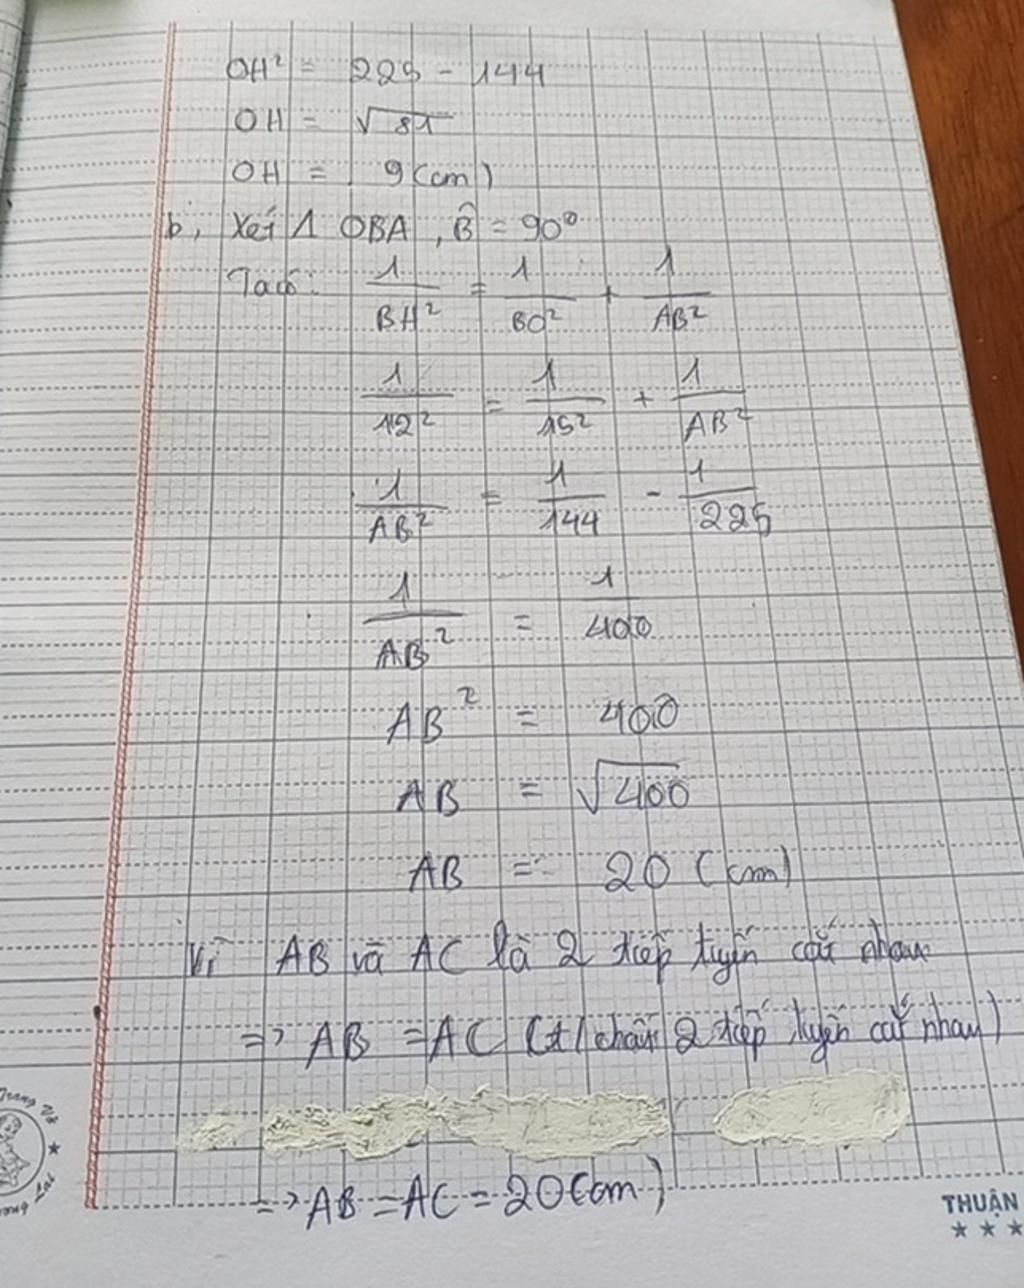 OH² = 225 - 144
OH = √81
OH = 9 (cm)
b, Xét Δ OBA, B̂ = 90°
Ta có: 1/BH² = 1/BO² + 1/AB²
1/12² = 1/15² + 1/AB²
1/AB² = 1/144 - 1/225
1/AB² = 1/400
AB² = 400
AB = √400
AB = 20 (cm)
Vì AB và AC là 2 tiếp tuyến cắt nhau
=> AB = AC (t/chất 2 tiếp tuyến cắt nhau)
=> AB = AC = 20 (cm)
THUẬN